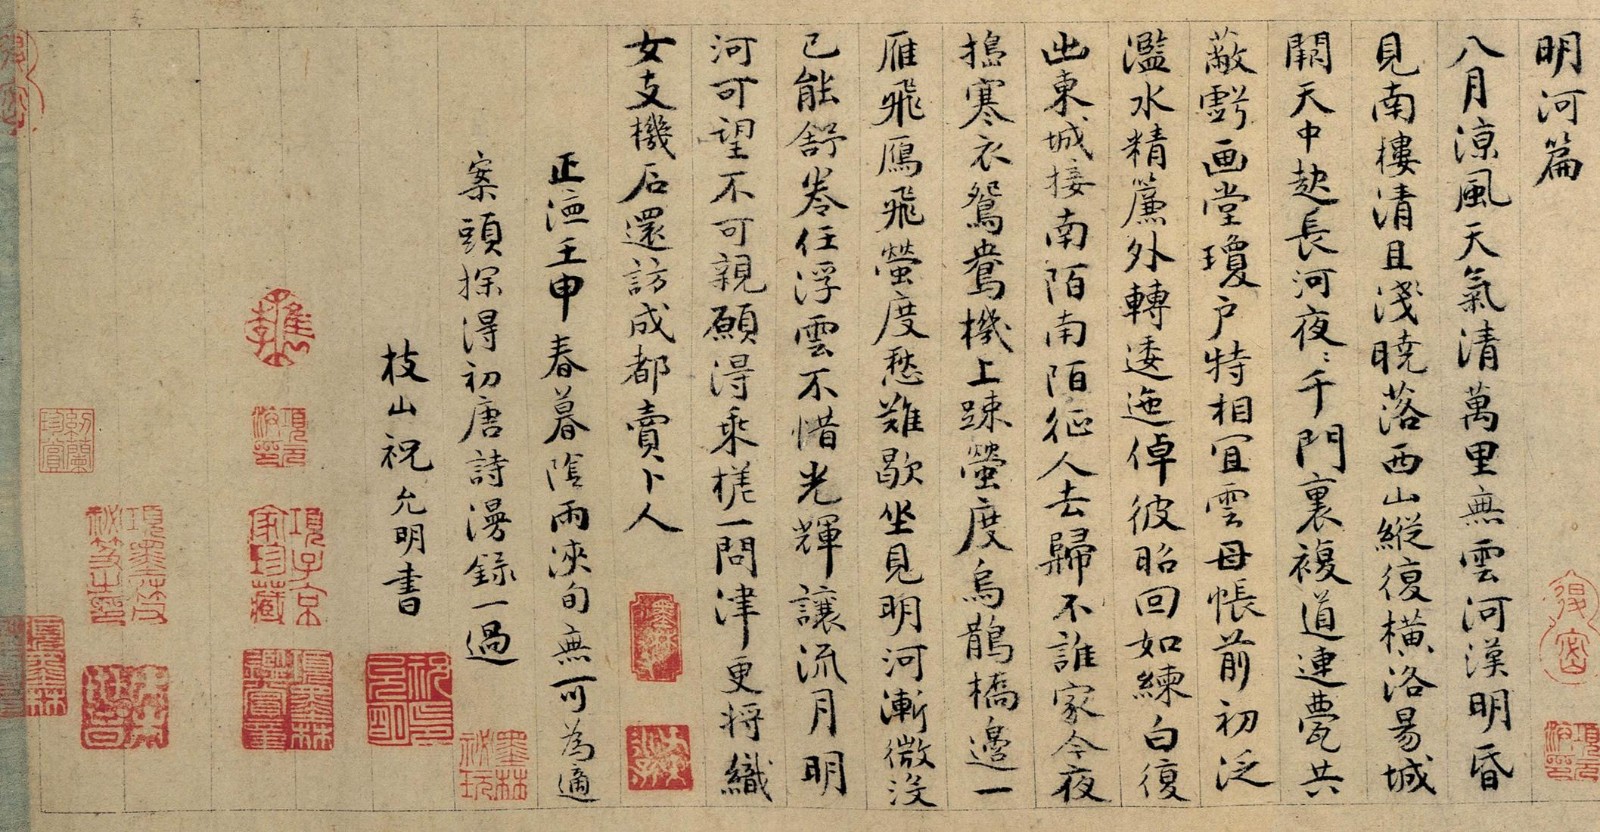 明河篇
八月涼風天氣清萬里無雲河漢明昏
見南樓清且淺曉落西山縱復橫洛昜城
闕天中起長河夜〻千門裏複道連甍共
蔽虧画堂瓊户特相宜雲母帳前初泛
濫水精簾外轉逶迤倬彼昭回如練白復
出東城接南陌南陌征人去歸不誰家今夜
擣寒衣鴛鴦機上踈螢度烏鵲橋邉一
雁飛鴈飛螢度愁難歇坐見明河漸微沒
已能舒卷任浮雲不惜光輝讓流月明
河可望不可親願得乘槎一問津更将織
女支機石還訪成都賣卜人
正德壬申春暮陰雨浹旬無可為適
案頭探得初唐詩漫錄一過
枝山祝允明書
墨林祕玩
項子京家珍藏
項墨林鑑賞章
項元汴印